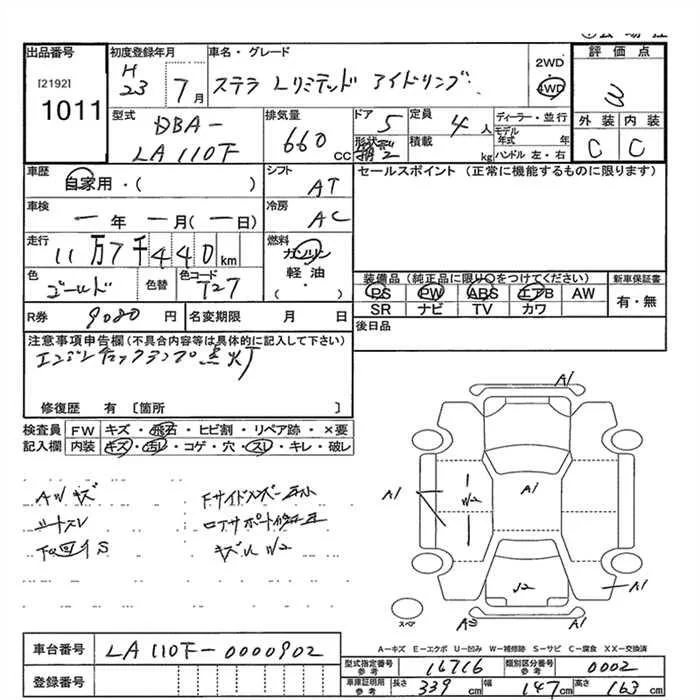 出品番号
[2192]
1011
初度登録年月
H
23 7月
車名・グレード
ステラ Lリミテッド アイドリング
2WD
4WD
評価点
3
外装 内装
C C
型式
DBA-
LA110F
排気量
660
cc
ドア
5
形状
定員
4人
積載
kg
ディーラー・並行
モデル年式 年
ハンドル 左・右
車歴
自家用・( )
シフト
AT
セールスポイント (正常に機能するものに限ります)
車検
一年 一月(一日)
冷房
AC
走行
11万7千440km
燃料
ガソリン
軽油
・
( )
色
ゴールド
色替
色コード
T27
装備品(純正品に限り○をつけてください)
PS PW ABS エアB AW
SR ナビ TV カワ
新車保証書
有・無
R券 9080円
名変期限 月 日
後日品
注意事項申告欄(不具合内容等は具体的に記入して下さい)
エンジンチェックランプ点灯
修復歴 有 [箇所 ]
検査員
記入欄
FW キズ・飛石・ヒビ割・リペア跡・×要
内装 キズ・汚レ・コゲ・穴・スレ・キレ・破レ
Aツキズ
シートスレ
下回りS
キズU W2
A1
A1
A1
W2
A1
A1
A1
スペア
A-キズ E-エクボ U-凹み W-補修跡 S-サビ C-腐食 XX-交換済
車台番号 LA110F-0000902
登録番号
型式指定番号
参考
16716
類別区分番号
参考
0002
車庫証明用
参考
長さ 339cm 幅 147cm 高さ 163cm